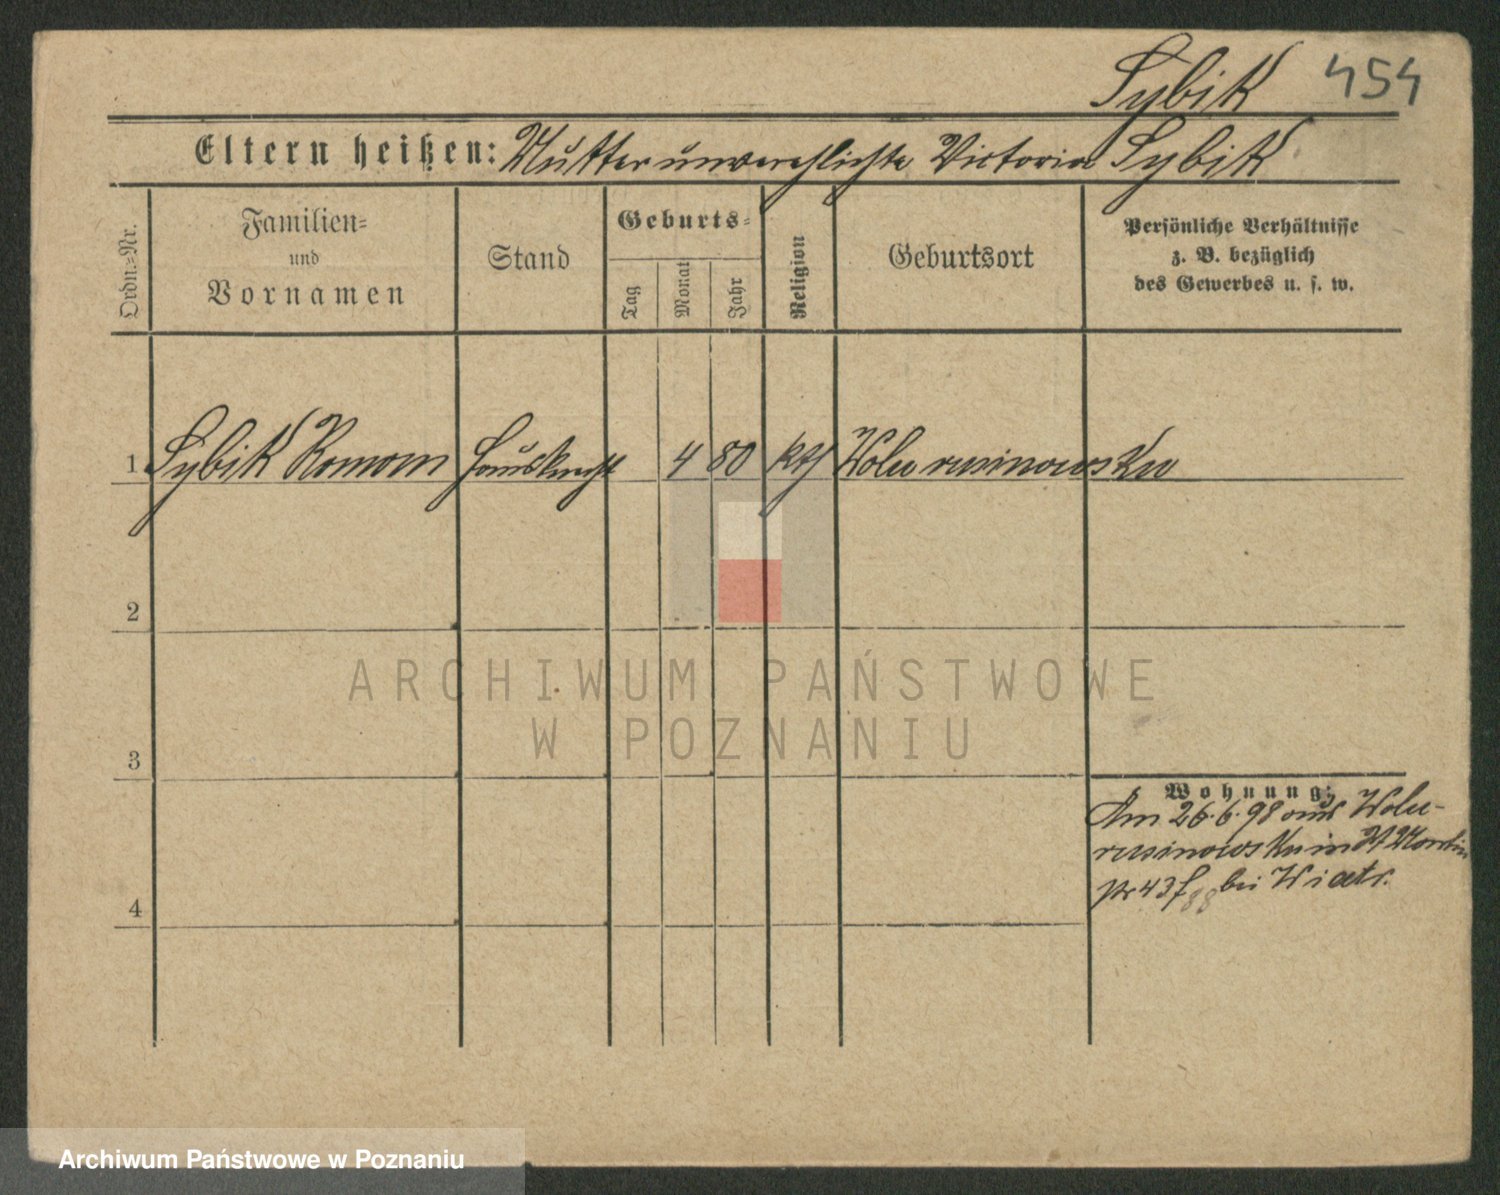 Sybik 454
Eltern heißen: Mutter unverehlichte Victoria Sybik
Ordn.-Nr.
Familien-
und
Vornamen
Stand
Geburts-
Tag
Monat
Jahr
Religion
Geburtsort
Persönliche Verhältnisse
z. B. bezüglich
des Gewerbes u. s. w.
1 Sybik Roman Hausknecht 4 80 kth Wola rusinowska
2
ARCHIWUM PAŃSTWOWE
W POZNANIU
3
Wohnung:
Am 26.6.98 aus Wola-
rusinowska in St Martin
43 bei Wiatr.
4
Archiwum Państwowe w Poznaniu